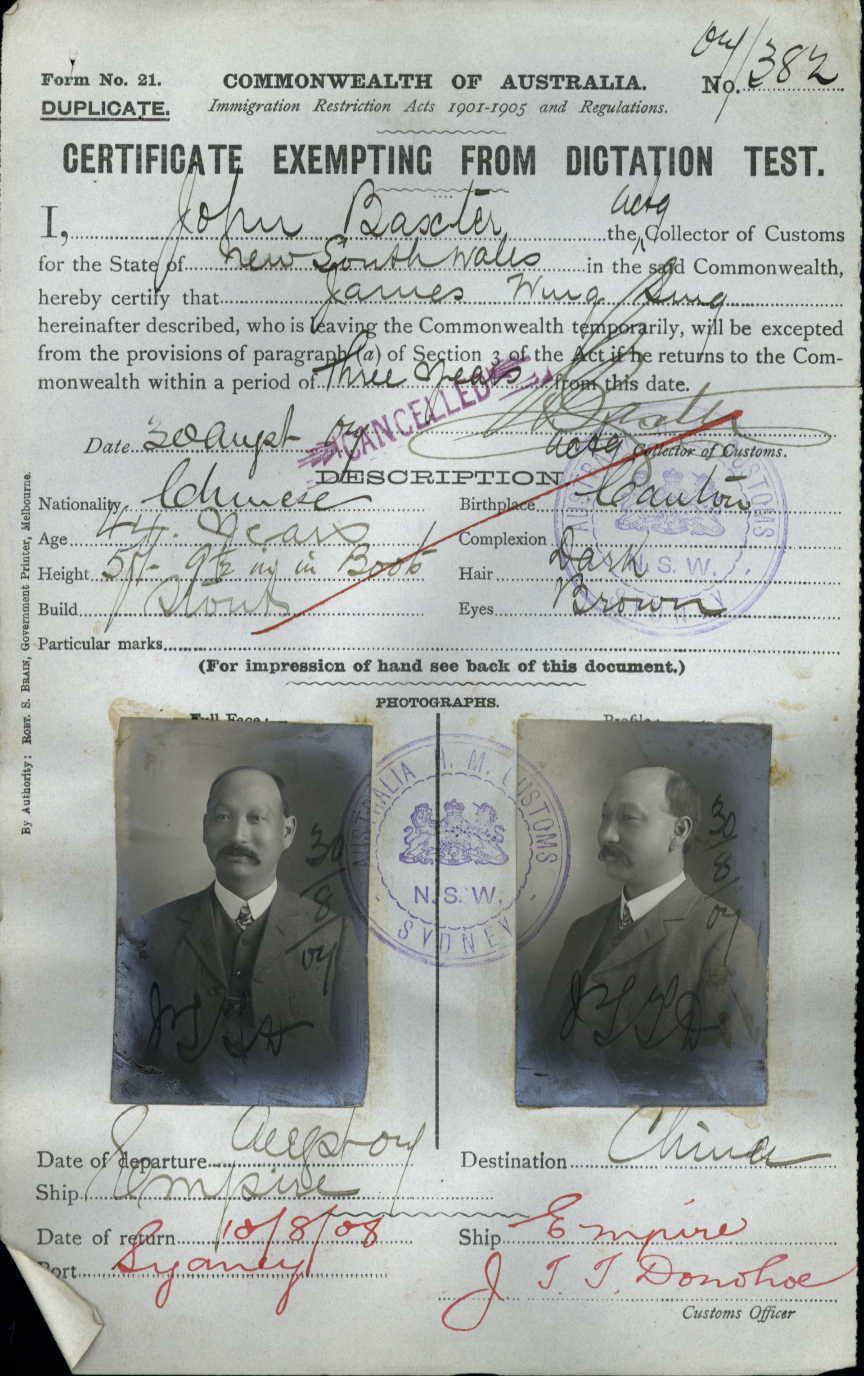 07/382
Form No. 21. COMMONWEALTH OF AUSTRALIA. No.
DUPLICATE. Immigration Restriction Acts 1901-1905 and Regulations.
CERTIFICATE EXEMPTING FROM DICTATION TEST.
I, John Baxter the actg Collector of Customs
for the State of New South Wales in the said Commonwealth,
hereby certify that James Wing Sing
hereinafter described, who is leaving the Commonwealth temporarily, will be excepted
from the provisions of paragraph (a) of Section 3 of the Act if he returns to the Com-
monwealth within a period of Three Years from this date.
CANCELLED
Date 30 Augst 07 J Baxter
actg Collector of Customs.
DESCRIPTION
Nationality Chinese Birthplace Canton
Age 44 Years Complexion
Height 5ft 9½ in in Boots Hair Dark
Build Stout Eyes Brown
Particular marks
(For impression of hand see back of this document.)
PHOTOGRAPHS.
Full Face: Profile:
AUSTRALIA H. M. CUSTOMS
N.S.W.
SYDNEY
AUSTRALIA H. M. CUSTOMS
N.S.W.
SYDNEY
30/8/07
30/8/07
JTTD
JTTD
Date of departure Augst 07 Destination China
Ship Empire
Date of return 10/8/08 Ship Empire
Port Sydney J. T. T. Donohoe
Customs Officer
By Authority: ROBT. S. BRAIN, Government Printer, Melbourne.